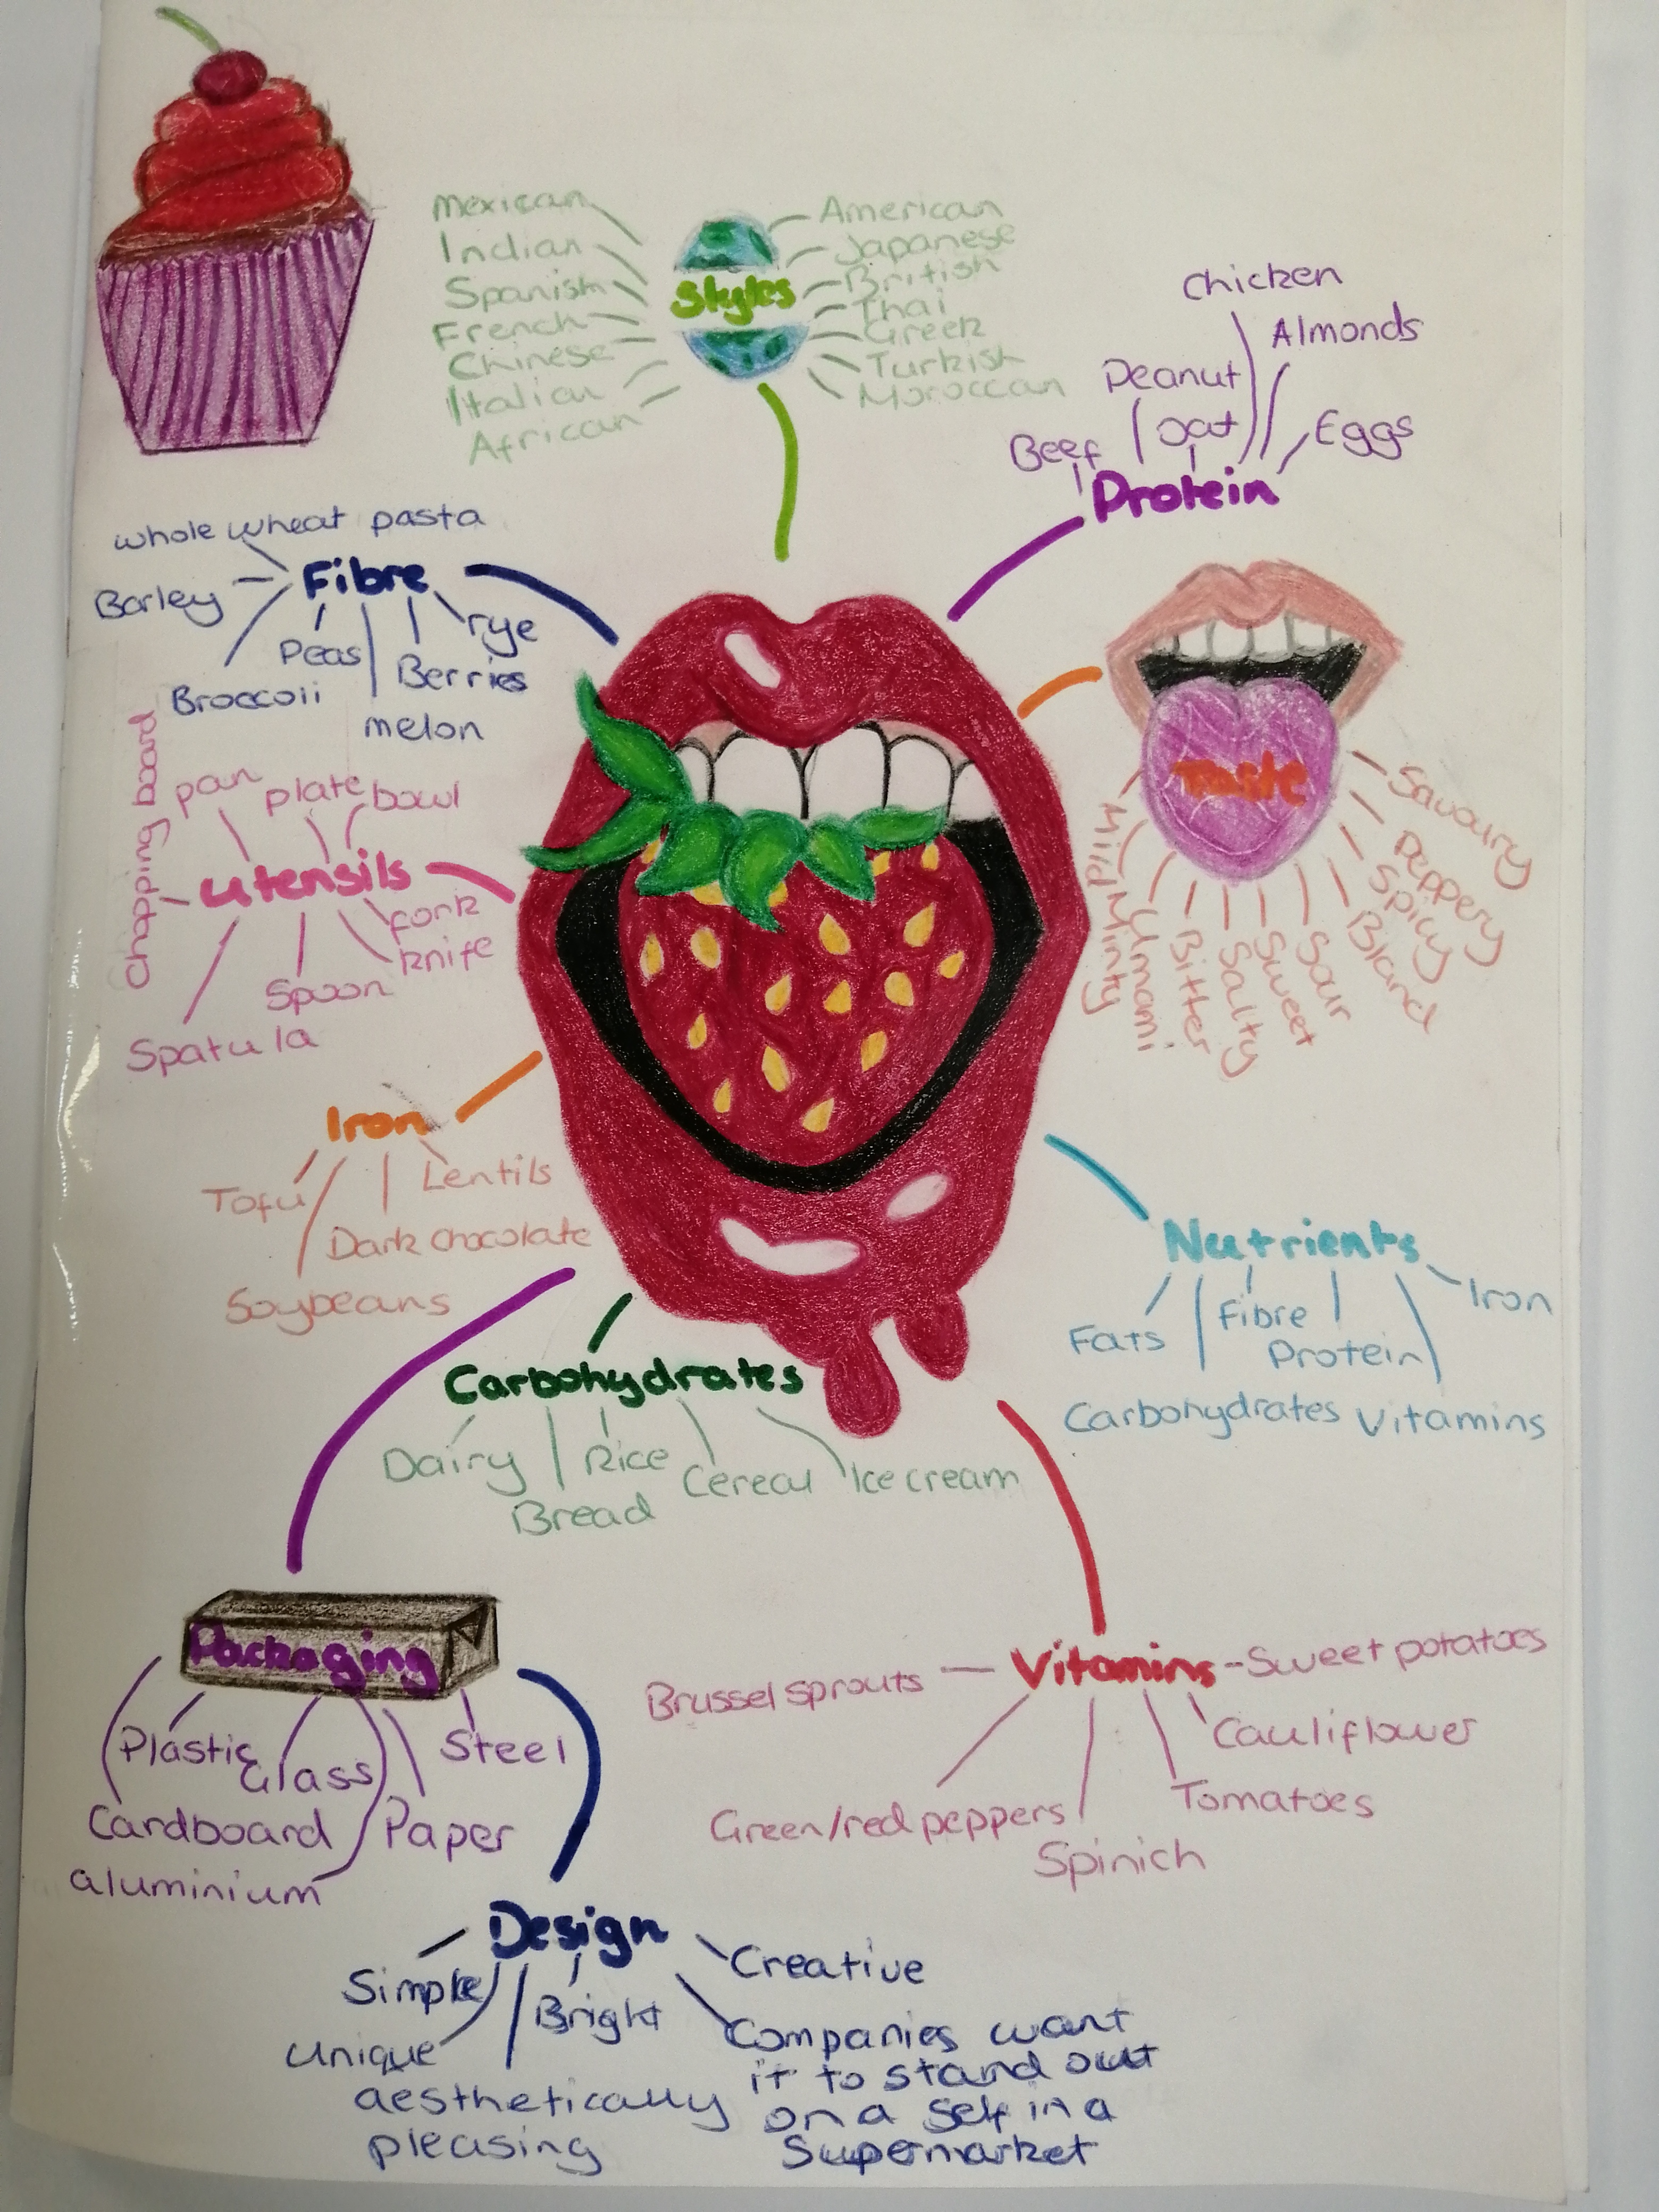 Mexican
Indian
Spanish
French
Chinese
Italian
African
Styles
American
Japanese
British
Thai
Greek
Turkish
Moroccan
Chicken
Almonds
Peanut
Oat
Eggs
Beef
Protein
whole wheat pasta
Fibre
Barley
rye
Peas
Berries
Broccoii
melon
Chopping board
pan
plate
bowl
utensils
fork
knife
Spoon
Spatula
Taste
Savoury
Peppery
Spicy
Bland
Sour
Sweet
Salty
Bitter
Umami
Minty
Mild
Iron
Tofu
Lentils
Dark chocolate
Soybeans
Nutrients
Iron
Fibre
Fats
Protein
Carbohydrates
Vitamins
Carbohydrates
Dairy
Rice
Cereal
Ice cream
Bread
Packaging
Plastic
Glass
Steel
Cardboard
Paper
aluminium
Vitamins
Sweet potatoes
Brussel sprouts
Cauliflower
Tomatoes
Green/red peppers
Spinich
Design
Simple
Creative
Bright
Unique
aesthetically
pleasing
Companies want
it to stand out
on a self in a
Supermarket